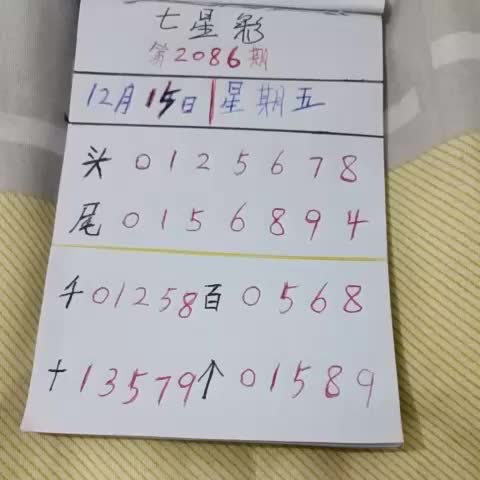 七星彩
第2086期
12月15日 星期五
头 0 1 2 5 6 7 8
尾 0 1 5 6 8 9 4
千 0 1 2 5 8 百 0 5 6 8
十 1 3 5 7 9 个 0 1 5 8 9